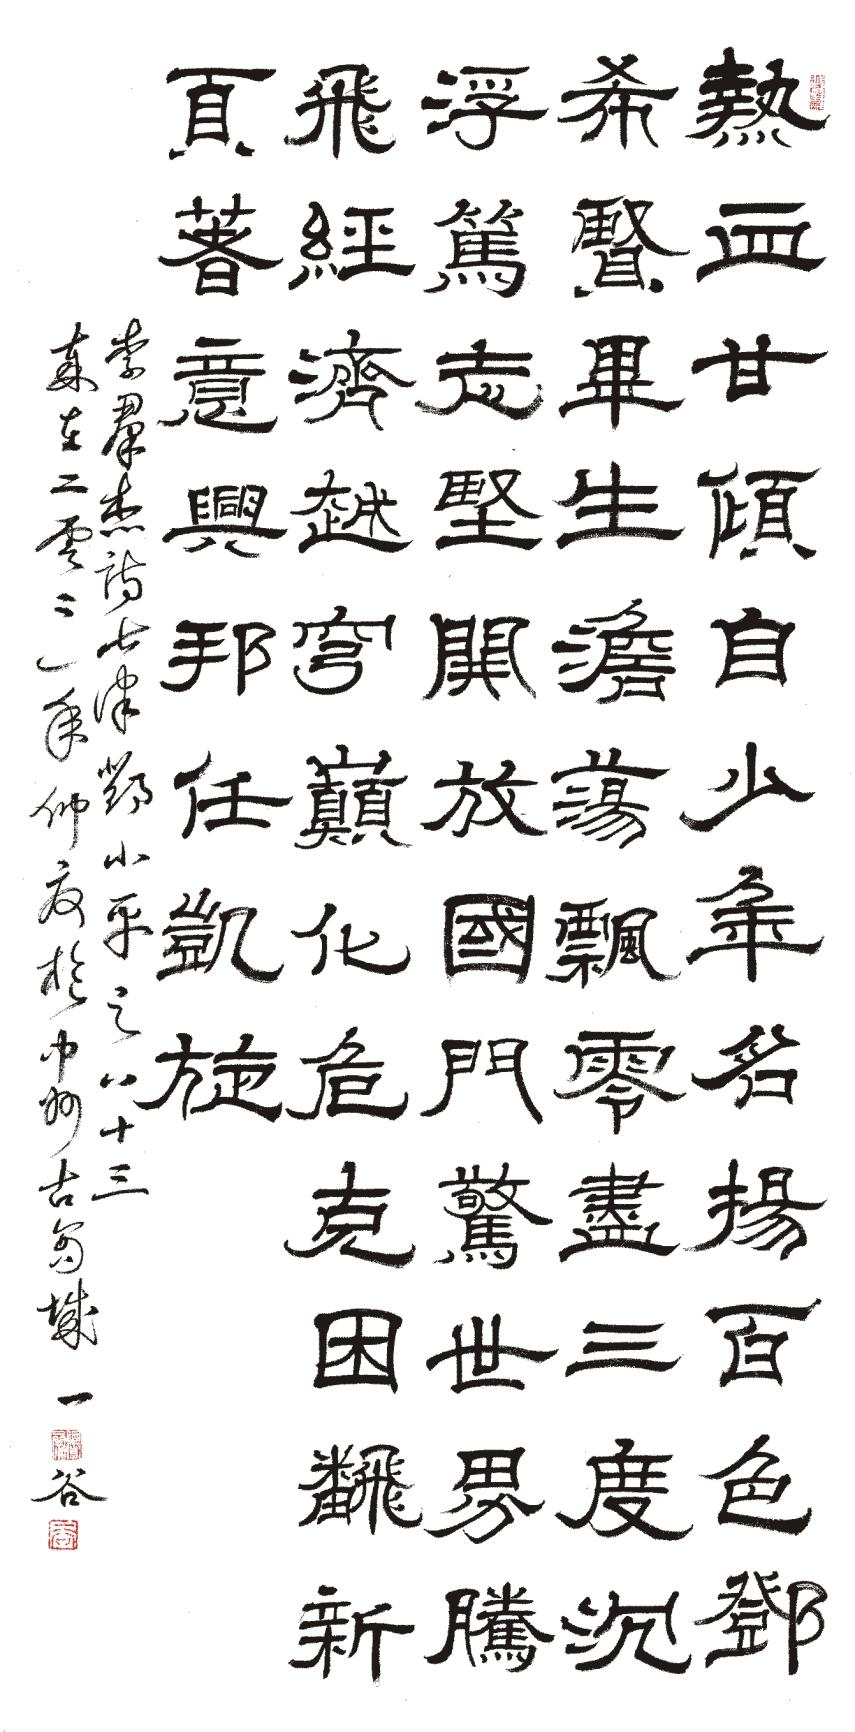 熱血甘傾自少年名揚百色鄧
希賢畢生澹蕩飄零盡三度沉
浮篤志堅開放國門驚世界騰
飛經濟越穹巔化危克困飜新
頁著意興邦任凱旋
李羣杰詩七律鄧小平之八十三
在二零二一年仲夏於州古城一谷